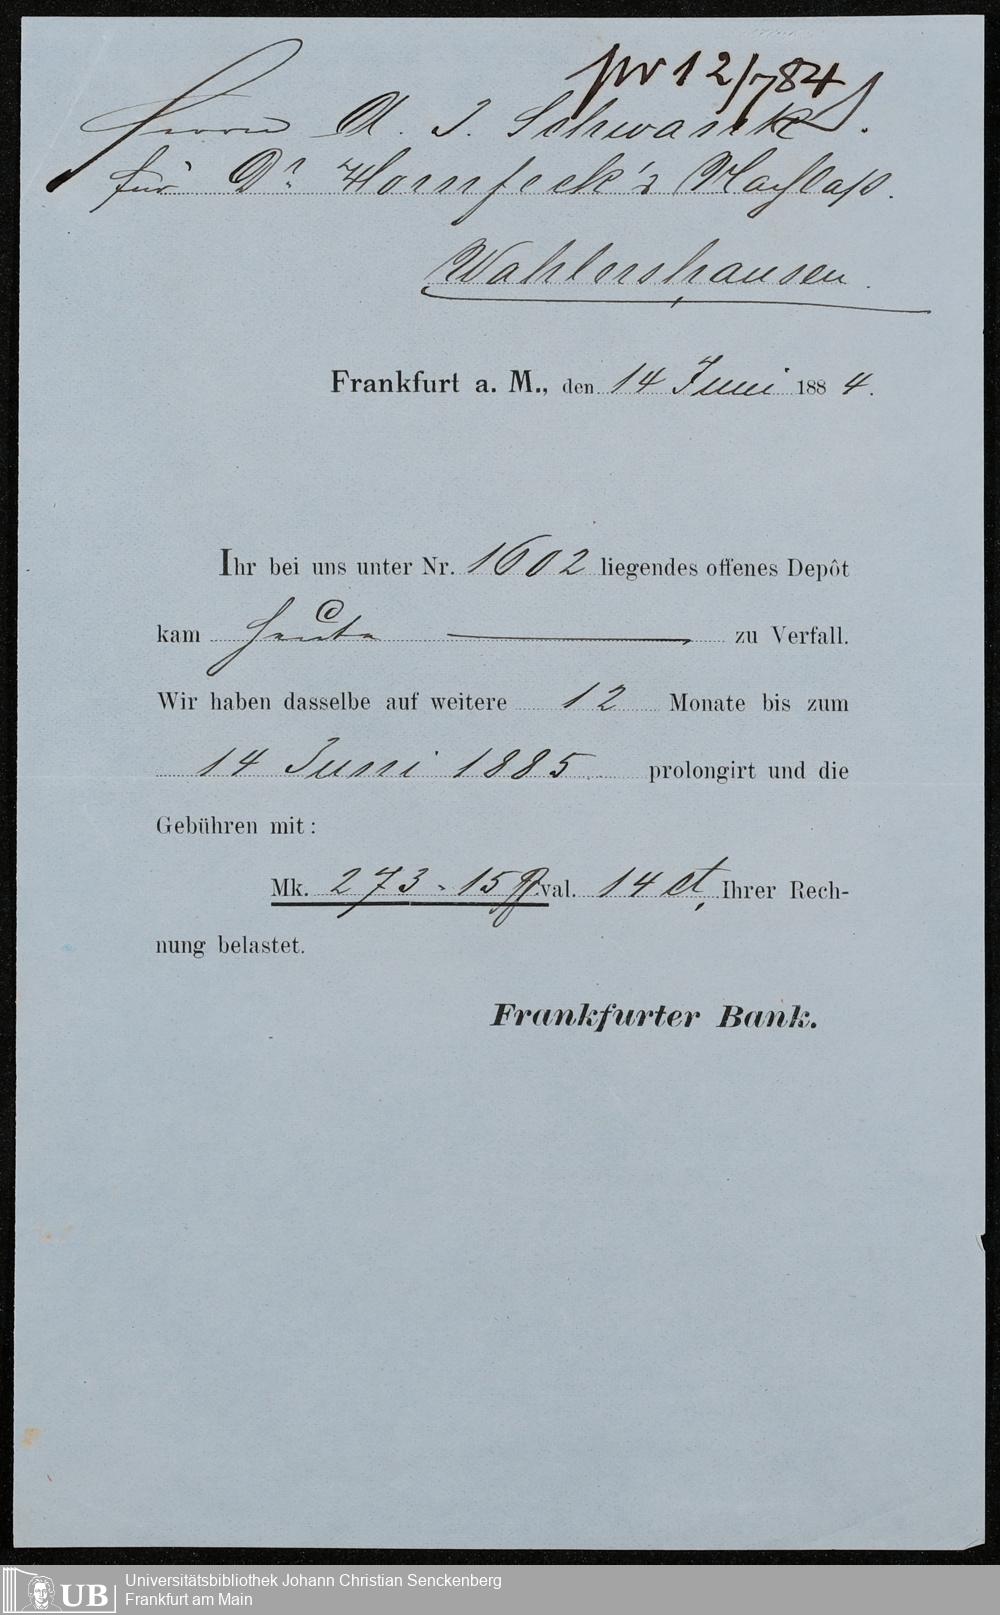 pr 12/7 84
Herrn A. J. Schwank
für Dr. Hornfeck's Nachlaß.
Wahlershausen.
Frankfurt a. M., den 14 Juni 1884.
Ihr bei uns unter Nr. 1602 liegendes offenes Depôt
kam heute zu Verfall.
Wir haben dasselbe auf weitere 12 Monate bis zum
14 Juni 1885 prolongirt und die
Gebühren mit:
Mk. 273.15 val. 14 ct, Ihrer Rech-
nung belastet.
Frankfurter Bank.
UB Universitätsbibliothek Johann Christian Senckenberg
Frankfurt am Main